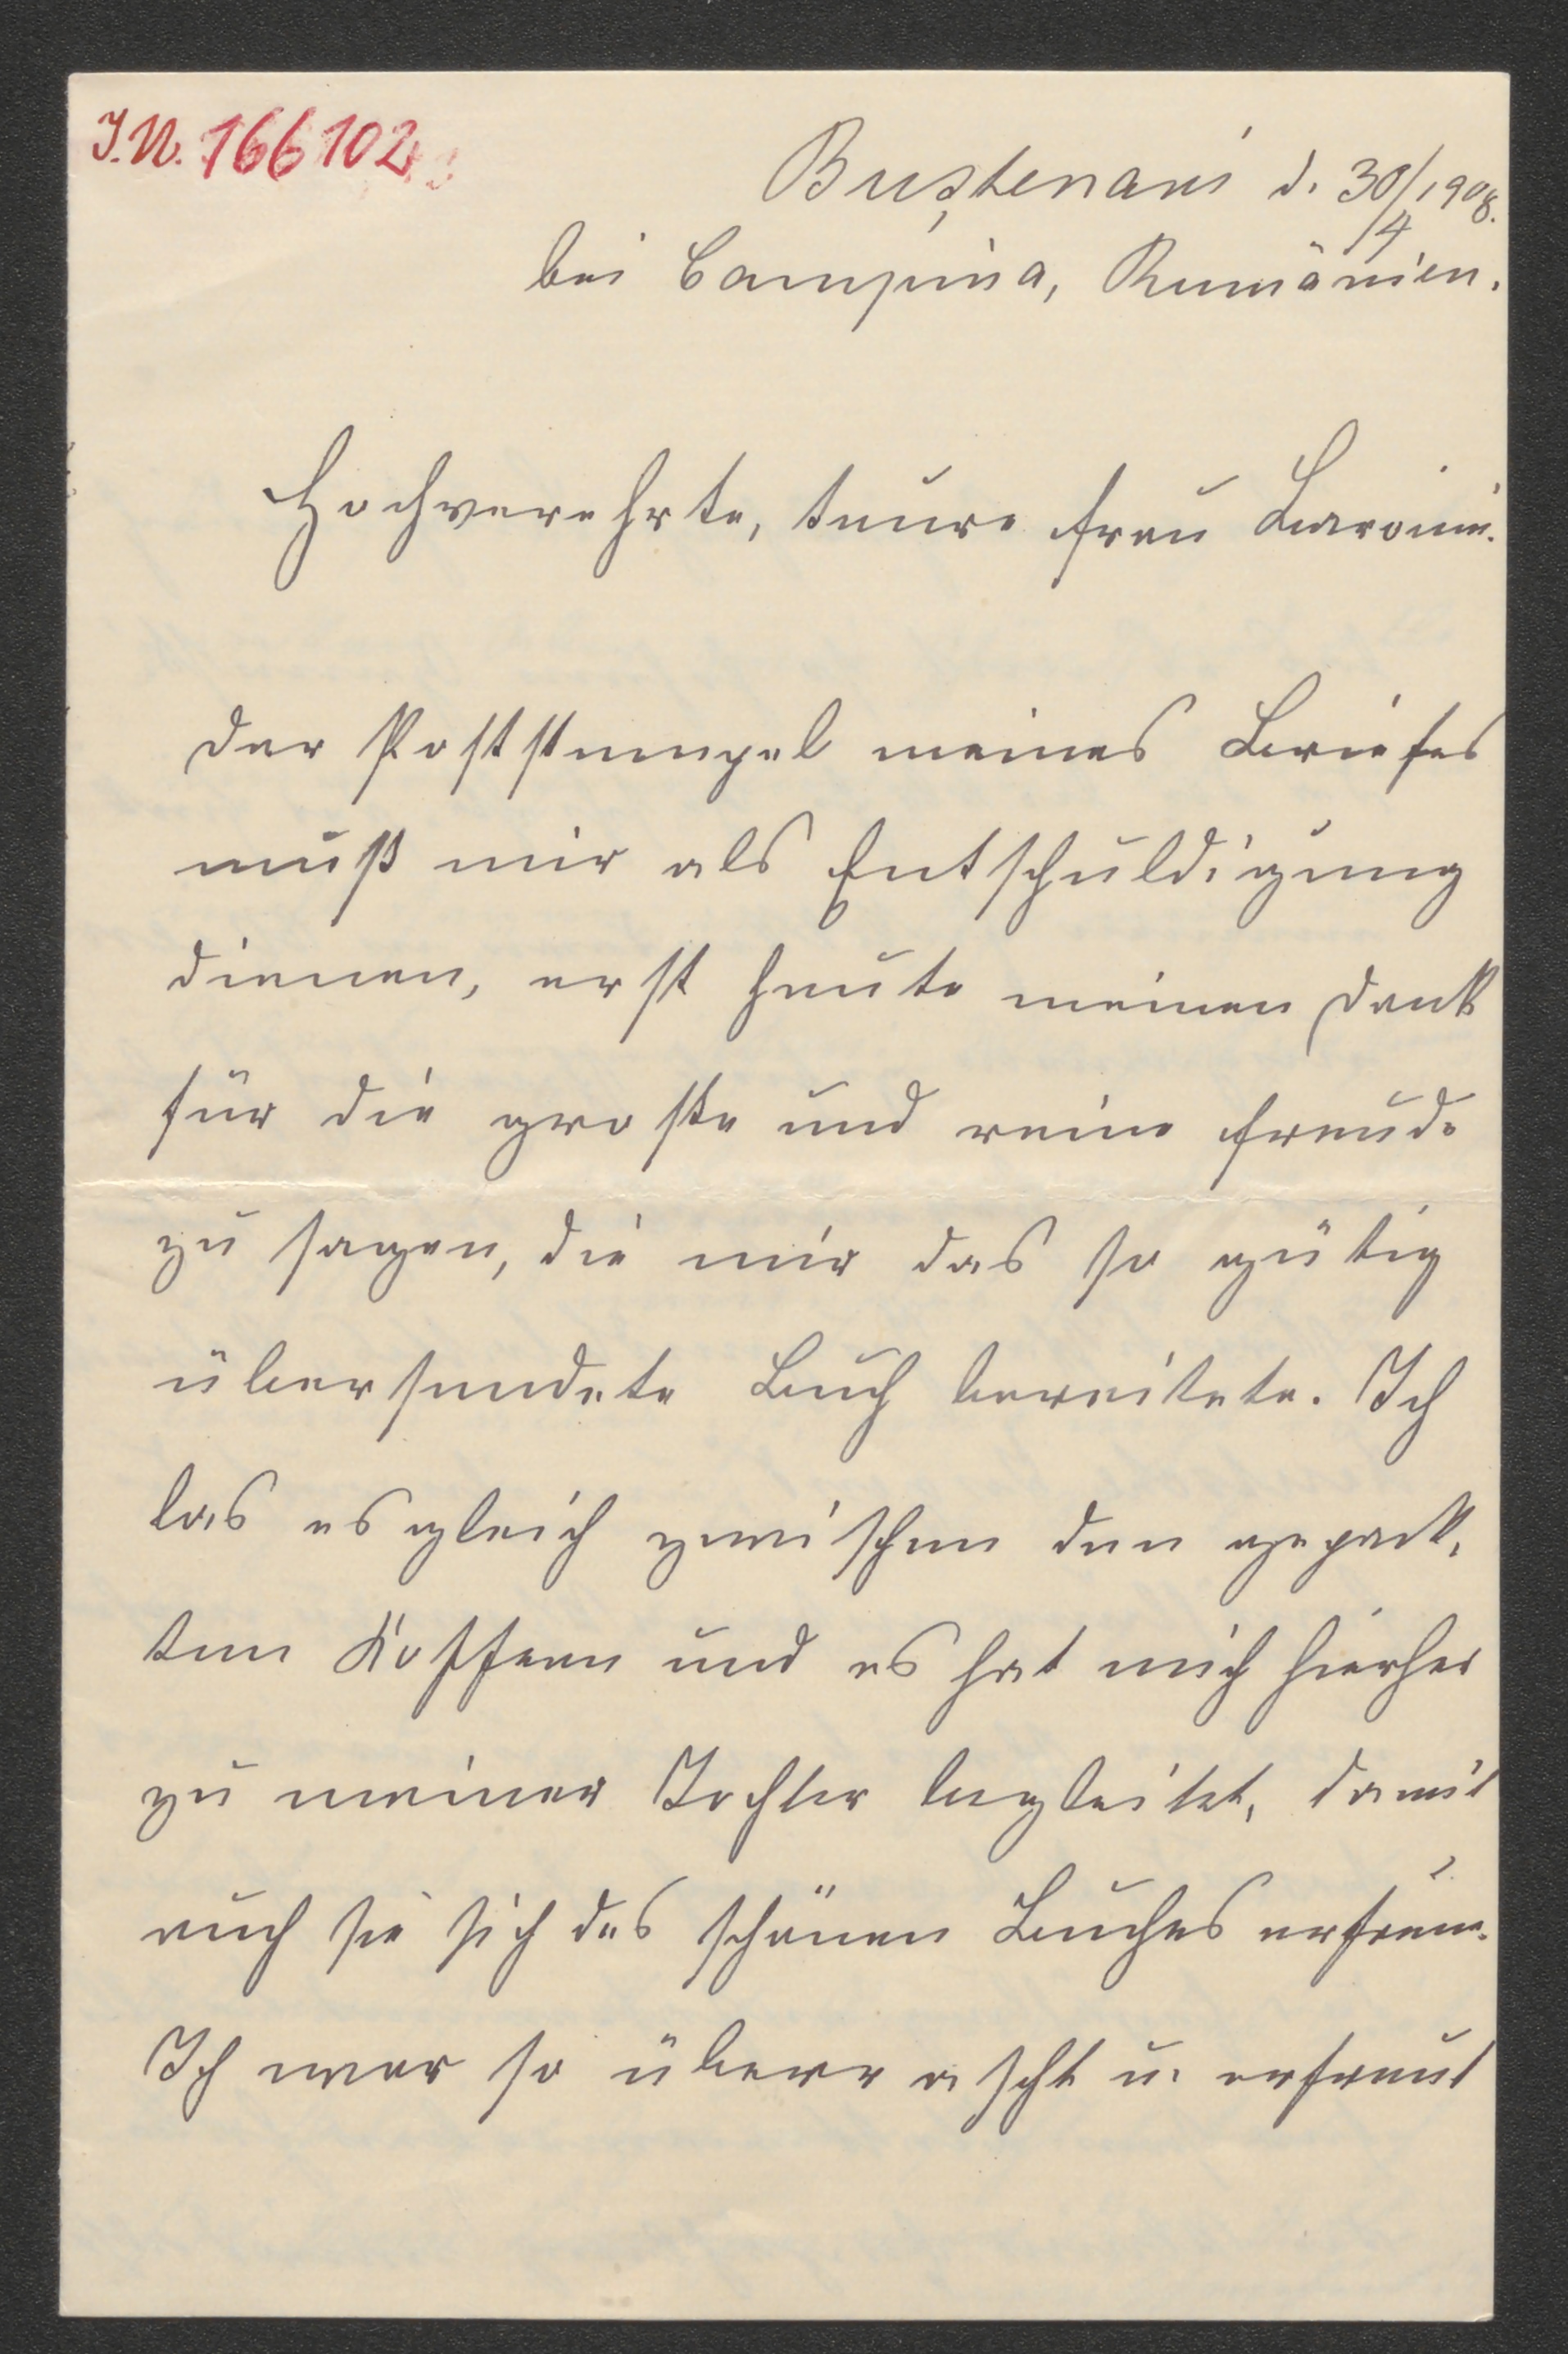 J.N. 166102
Buştenari d. 30/4 1908.
bei Campina, Rumänien.
Hochverehrte, teure Frau Baronin.
Der Poststempel meines Briefes
muß mir als Entschuldigung
dienen, erst heute meinen Dank
für die große und reine Freude
zu sagen, die mir das so gütig
übersendete Buch bereitete. Ich
las es gleich zwischen den gepack-
ten Koffern und es hat mich hierher
zu meiner Tochter begleitet, damit
auch sie sich des schönen Buches erfreue.
Ich war so überrascht u. erfreut